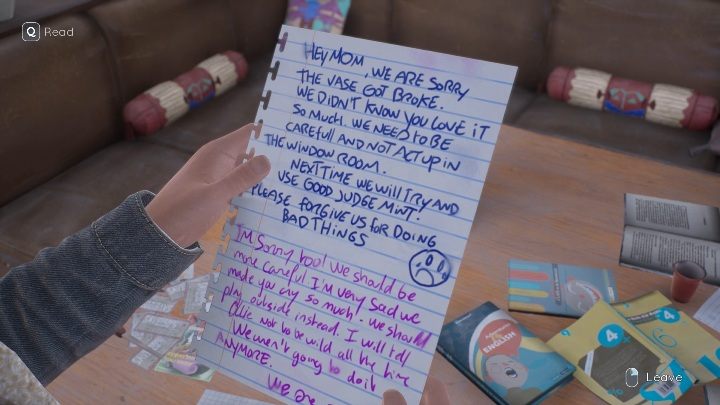 Q Read
HEY MOM, WE ARE SORRY
THE VASE GOT BROKE.
WE DIDN'T KNOW YOU LOVE iT
SO MUCH. WE NEED TO BE
CAREFULL AND NOT ACT UP IN
THE WINDOW ROOM.
NEXT TIME WE WILL TRY AND
USE GOOD JUDGE MINT!
PLEASE FORGIVE US FOR DOING
BAD THINGS
I'm Sorry too! We should be
more careful I'm very sad we
made you cry so much. We should
play outside instead. I will tell
Ollie not to be wild all the time
We weren't going to do it
ANYMORE.
We are
ENGLISH
4
4
6
Leave